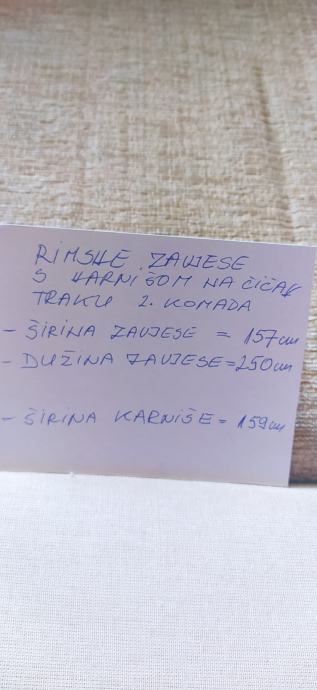 RIMSKE ZAVJESE
S KARNIŠOM NA ČIČAK
TRAKU 2. KOMADA
- ŠIRINA ZAVJESE = 157cm
- DUŽINA ZAVJESE = 250cm
- ŠIRINA KARNIŠE = 159cm